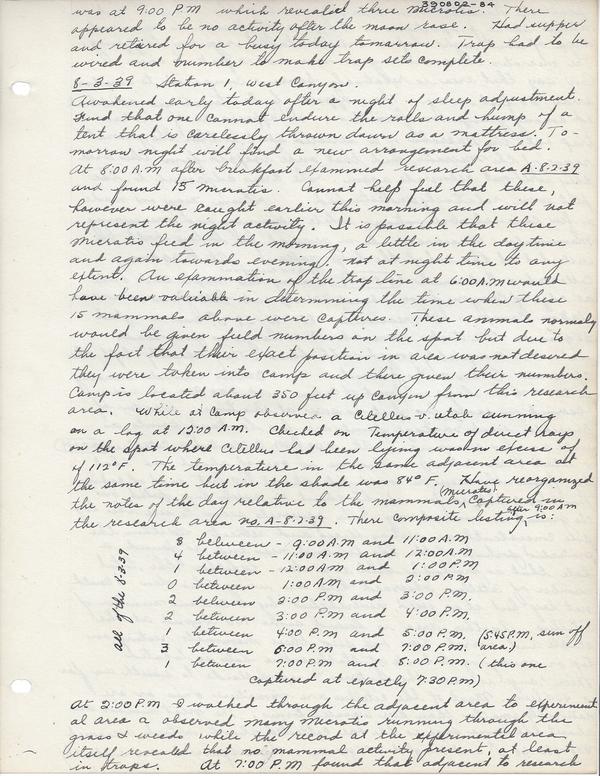 390802-84
was at 9:00 P.M which revealed three Microtis. There
appeared to be no activity after the moon rose. Had supper
and retired for a busy today tomorrow. Trap had to be
wired and number to make trap sets complete.
8-3-39 Station 1, West Canyon.
Awakened early today after a night of sleep adjustment.
Find that one cannot endure the rolls and hump of a
tent that is carelessly thrown down as a mattress. To-
morrow night will find a new arrangement for bed.
At 8:00 A.M after breakfast examined research area A-8-2-39
and found 15 Microtis. Cannot help feel that these,
however were caught earlier this morning and will not
represent the night activity. It is possible that these
Microtis feed in the morning, a little in the daytime
and again towards evening. not at night time to any
extent. An examination of the trap line at 6:00 A.M would
have been valuable in determining the time when these
15 mammals above were captures. These animals normaly
would be given field numbers on the spot but due to
the fact that their exact position in area was not desired
they were taken into camp and there given their numbers.
Camp is located about 350 feet up canyon from this research
area. While at Camp observed a Citellus v. utah sunning
on a log at 12:00 A.M. Checked on Temperature of direct rays
on the spot where Citellus had been lying was in excess of
of 112°F. The temperature in the same adjacent area at
the same time but in the shade was 84° F. Have reorganized
the notes of the day relative to the mammals (Microtis) captured in
the research area no. A-8-2-39. There composite listing after 9:00 AM is:
all of the 8-3-39
8 between - 9:00 A.M and 11:00 A.M
4 between - 11:00 A.M and 12:00 A.M
1 between - 12:00 A.M and 1:00 P.M
0 between 1:00 A.M and 2:00 P.M
2 between 2:00 P.M and 3:00 P.M.
2 between 3:00 P.M and 4:00 P.M.
1 between 4:00 P.M and 5:00 P.M. (5:45 P.M, sun off
3 between 6:00 P.M and 7:00 P.M. area)
1 between 7:00 P.M and 8:00 P.M. (this one
captured at exactly 7:30 P.M)
At 2:00 P.M I walked through the adjacent area to experiment
al area a observed many Microtis running through the
grass & weeds while the record at the experimental area
itself revealed that no mammal activity present, at least
in traps. At 7:00 P.M found that adjacent to research